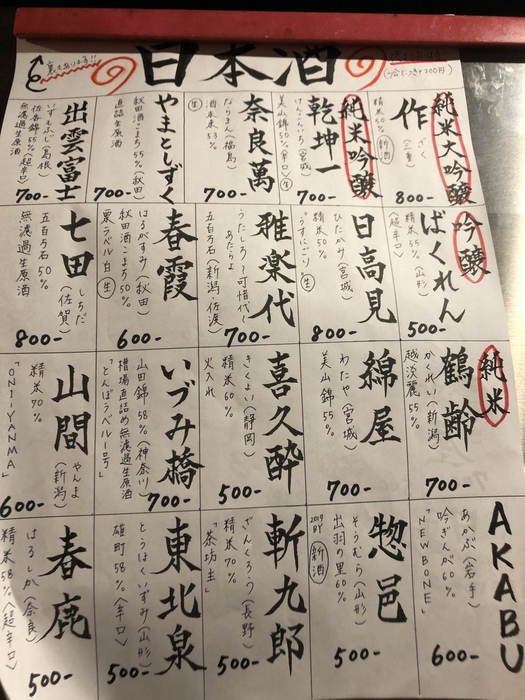 裏もあります!!
日本酒
純米大吟醸
作
ざく
(三重)
精米60%
新酒
800-
純米吟醸
乾坤一
けんこんいち(宮城)
美山錦50%(辛口)
生
700-
奈良萬
ならまん(福島)
酒本来53%
生
700-
やまとしずく
秋田酒こまち55%(秋田)
直詰生原酒
700-
出雲富士
いずもふじ(島根)
佐香錦55%(超辛口)
無濾過生原酒
700-
吟醸
ばくれん
(山形)
精米55%
(超辛口)
500-
日高見
ひたかみ(宮城)
精米50%
うすにごり
生
800-
雅楽代
うたしろ〜可惜代〜
あたらよ
五百万石(新潟・佐渡)
700-
春霞
はるがすみ(秋田)
秋田酒こまち50%
栗ラベル白
生
600-
七田
しちだ
(佐賀)
五百万石50%
無濾過生原酒
800-
純米
鶴齢
かくれい(新潟)
越淡麗55%
700-
綿屋
わたや(宮城)
美山錦55%
700-
喜久酔
きくよい(静岡)
精米60%
火入れ
500-
いづみ橋
山田錦58%(神奈川)
槽場直詰め無濾過生原酒
「とんぼラベル1号」
700-
山間
やんま
(新潟)
精米70%
「ONI-YANMA」
600-
AKABU
あかぶ(岩手)
吟ぎんが60%
「NEWBORNE」
600-
惣邑
そうむら(山形)
出羽の里60%
2019BY
新酒
500-
斬九郎
ざんくろう(長野)
精米70%
「茶坊主」
500-
東北泉
とうほくいずみ(山形)
雄町58%(辛口)
500-
春鹿
はるしか(奈良)
精米58%(超辛口)
500-